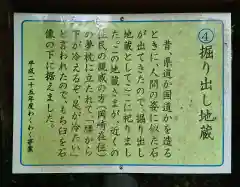 ④掘り出し地蔵
昔、県道か国道かを造る
とき、人間の姿に似た石
が出てきたので、掘り出し
地蔵としてここに祀りまし
た。この地蔵さまが、近くの
住民の親戚の方(岡崎在住)
の夢枕に立たれて「一様から
下が冷えるぞ、足が冷たい」
と言われたので、もち臼を石
像の下に据えました。
平成二十五年度わくわく事業